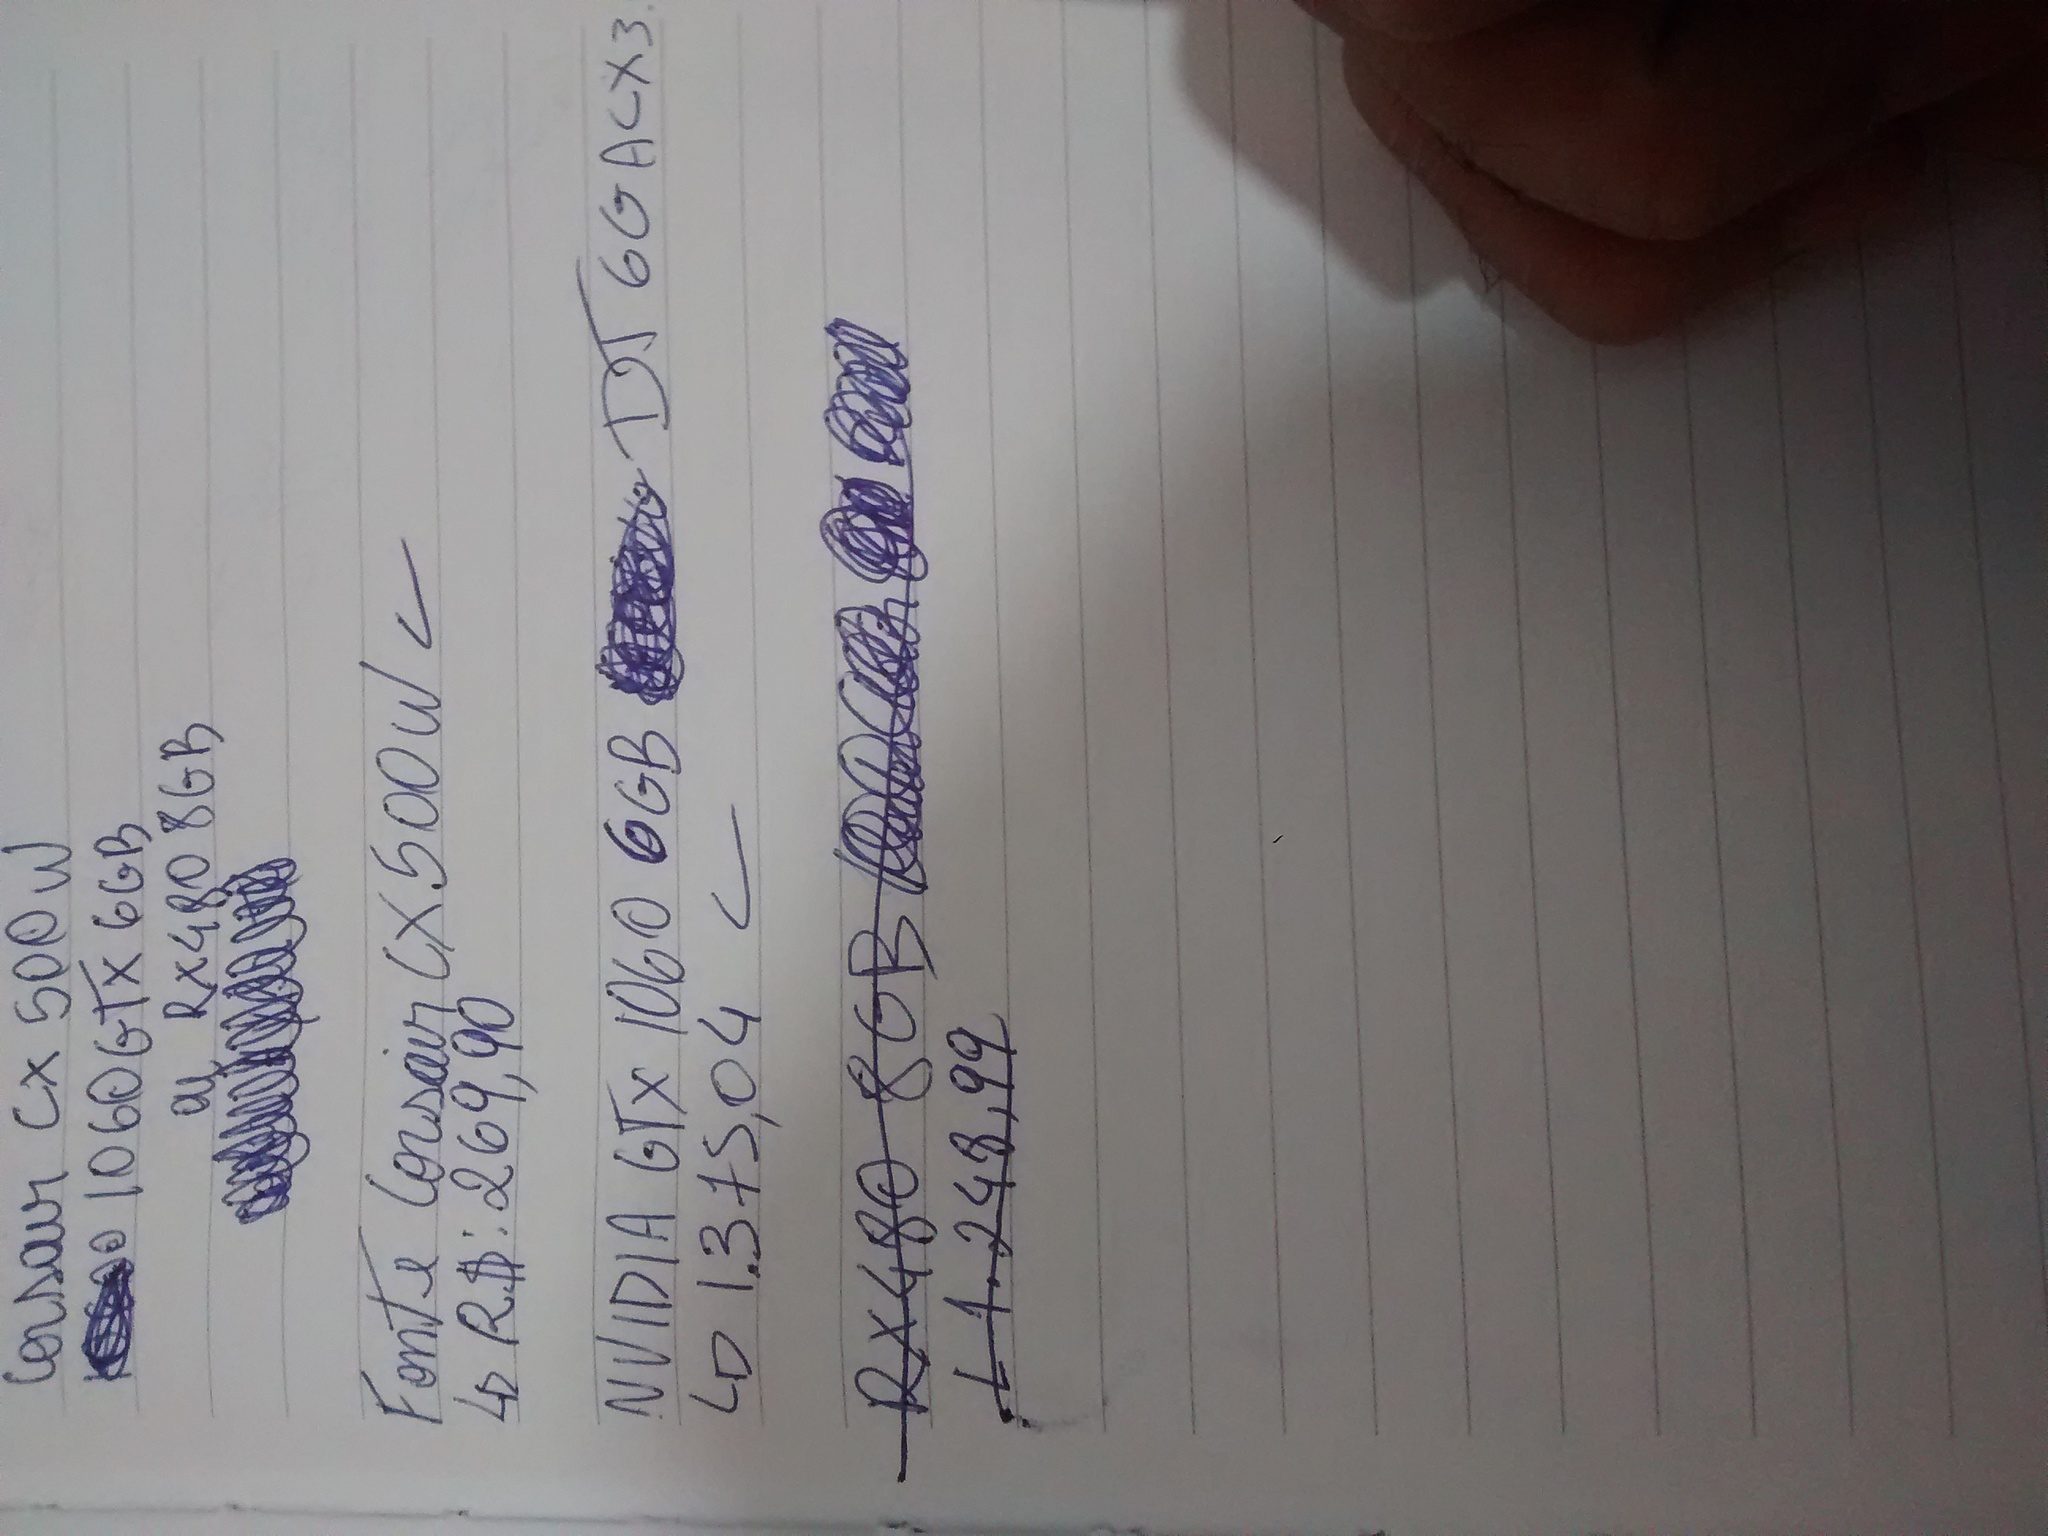 Corsair CX 500W
1060GTX 6GB
ou RX480 8GB
Fonte Corsair CX500W
↳ R$: 269,90
NVIDIA GTX 1060 6GB DT 6G ACX3.
↳ 1.375,04
RX480 8GB
↳ 1.248,99